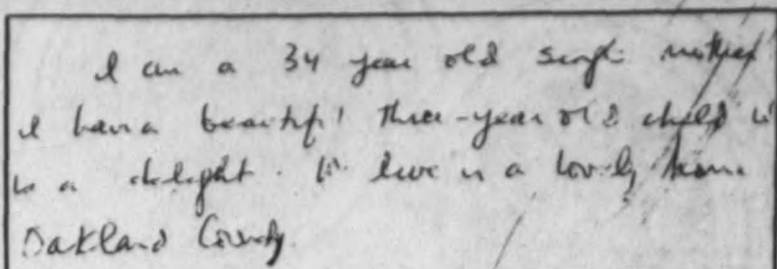 I am a 34 year old single mother
I have a beautiful three-year old child w
is a delight. We live in a lovely home
Oakland County.